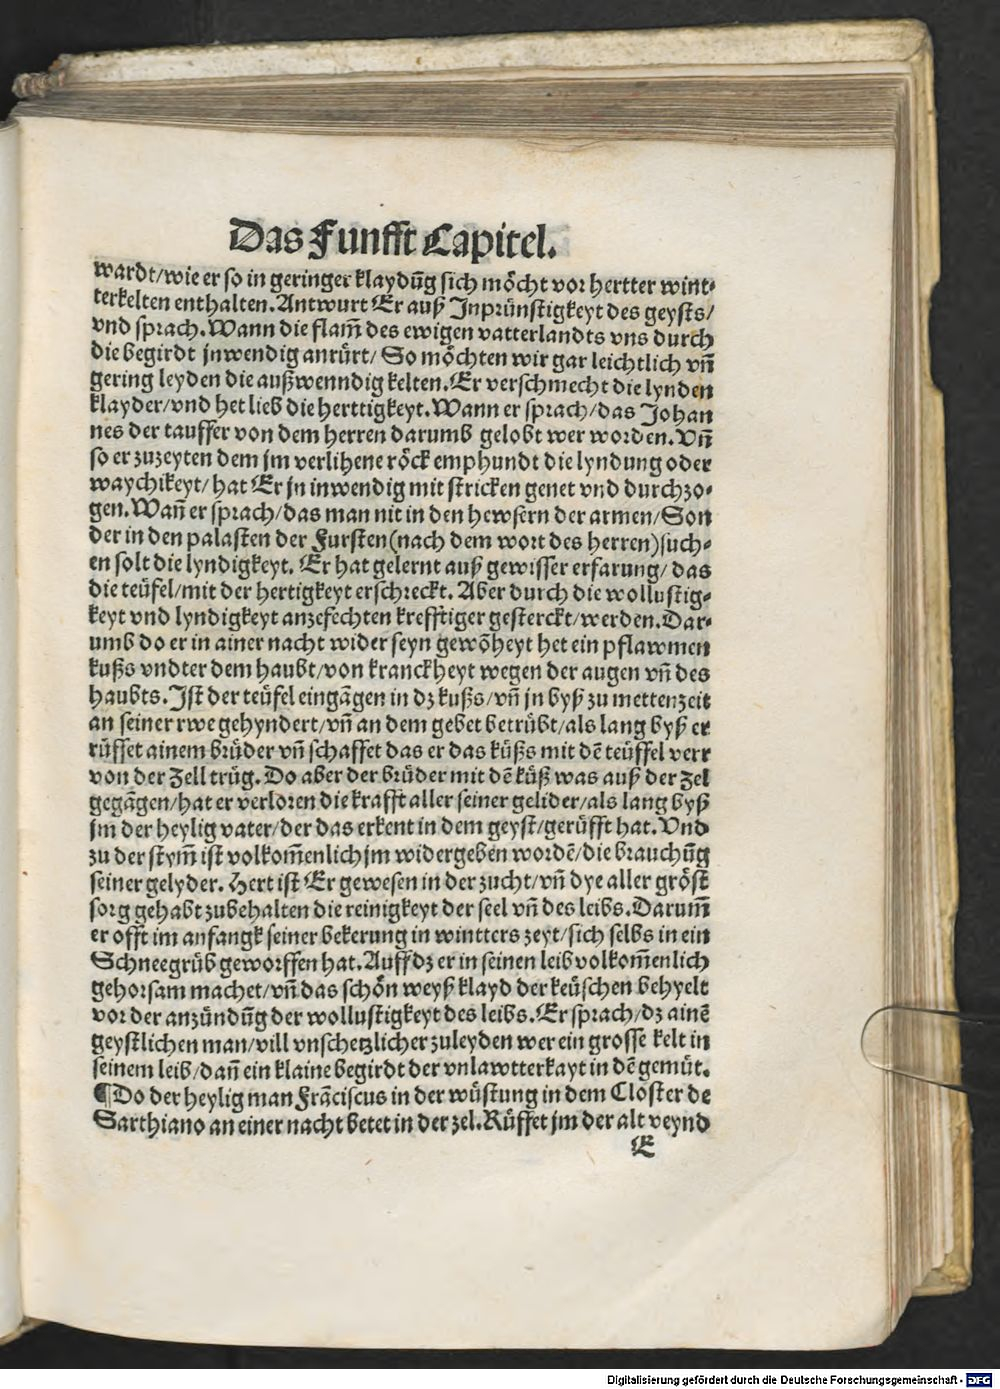 Das Funfft Capitel.
wardt/wie er so in geringer klaydūg sich mȯcht vor hertter wint⸗
terkelten enthalten. Antwurt Er auß Inprünstigkeyt des geysts/
vnd sprach. Wann die flam̄ des ewigen vatterlandts vns durch
die begirdt jnwendig anrürt/ So möchten wir gar leichtlich vn̄
gering leyden die außwenndig kelten. Er verschmecht die lynden
klayder/vnd het lieb die herttigkeyt. Wann er sprach/das Johan
nes der tauffer von dem herren darumb gelobt wer worden. Vn̄
so er zuzeyten dem jm verlihene röck emphundt die lyndung oder
waychikeyt/ hat Er jn inwendig mit stricken genet vnd durchzo⸗
gen. Wan̄ er sprach/das man nit in den hewsern der armen/Son
der in den palasten der Fursten(nach dem wort des herren)such⸗
en solt die lyndigkeyt. Er hat gelernt auß gewisser erfarung/ das
die teüfel/mit der hertigkeyt erschreckt. Aber durch die wollustig⸗
keyt vnd lyndigkeyt anzefechten krefftiger gesterckt/werden. Dar⸗
umb do er in ainer nacht wider seyn gewōheyt het ein pflawmen
kußs vndter dem haubt/von kranckheyt wegen der augen vn̄ des
haubts. Ist der teüfel eingāgen in dz kußs/vn̄ jn byß zu mettenzeit
an seiner rwe gehyndert/vn̄ an dem gebet betrübt/als lang byß er
rüffet ainem brüder vn̄ schaffet das er das küßs mit dē teüffel verr
von der Zell trüg. Do aber der brüder mit dē küß was auß der zel
gegāgen/hat er verloren die krafft aller seiner gelider/als lang byß
jm der heylig vater/der das erkent in dem geyst/gerüfft hat. Vnd
zu der stym̄ ist volkom̄enlich jm widergeben wordē/die brauchūg
seiner gelyder. Hert ist Er gewesen in der zucht/vn̄ dye aller gröst
sorg gehabt zubehalten die reinigkeyt der seel vn̄ des leibs. Darum̄
er offt im anfangk seiner bekerung in wintters zeyt/sich selbs in ein
Schneegrüb geworffen hat. Auff dz er in seinen leib volkom̄enlich
gehorsam machet/vn̄ das schön weyß klayd der keüschen behyelt
vor der anzündūg der wollustigkeyt des leibs. Er sprach/dz ainē
geystlichen man/vill vnschetzlicher zuleyden wer ein grosse kelt in
seinem leib/dan̄ ein klaine begirdt der vnlawtterkayt in dē gemüt.
¶Do der heylig man Frāciscus in der wüstung in dem Closter de
Sarthiano an einer nacht betet in der zel. Rüffet jm der alt veynd
E
Digitalisierung gefördert durch die Deutsche Forschungsgemeinschaft - DFG